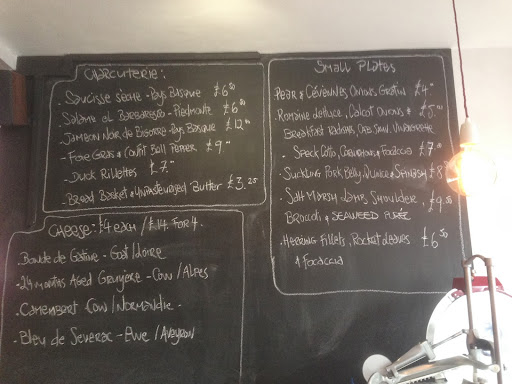 CHARCUTERIE:
. SAUCISSE SÈCHE - PAYS BASQUE £6
SALAME AL BARBARESCO - PIEDMONTE £6
JAMBON NOIR DE BIGORRE - PAYS BASQUE £12
- FOIE GRAS & CONFIT BELL PEPPER £9
- DUCK RILLETTES
£7
- BREAD BASKET & UNPASTEURISED BUTTER £3.20
CHEESE: £4 EACH / £14 FOR 4
. BONDE DE GATINE - GOAT / LOIRE
. 24 MONTHS AGED GRUYÈRE - COW / ALPES
. CAMEMBERT COW / NORMANDIE -
. BLEU DE SEVERAC - EWE / AVEYRON
SMALL PLATES
PEAR & CÉVENNES ONIONS GRATIN £4
. ROMAINE LETTUCE, CALCOT ONIONS & £5
BREAKFAST RADISH, VINAIGRETTE
- SPECK COTTO, & FOCACCIA £7
. SUCKLING PORK BELLY, QUINCE & SPINACH £8
. SALT MARSH LAMB SHOULDER, £9.50
BROCCOLI & SEAWEED PURÉE
. HERRING FILLETS, ROCKET LEAVES £6.50
& FOCACCIA